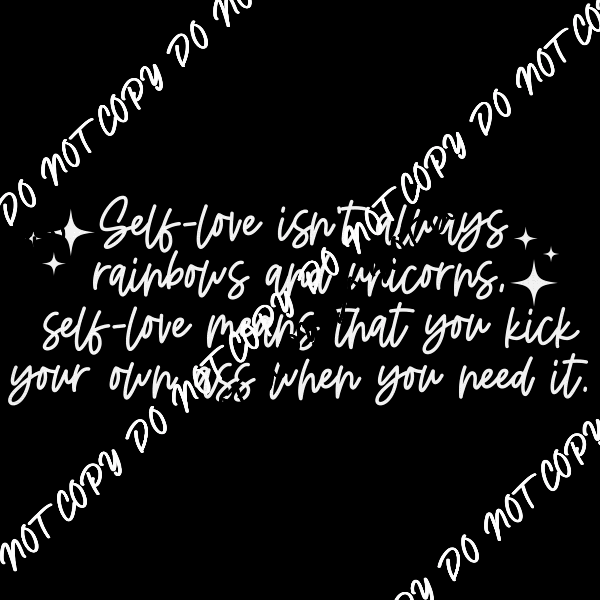 DO NOT COPY DO NOT
DO NOT COPY DO NOT COPY DO NOT COPY
Self-love isn't always
rainbows and unicorns.
self-love means that you kick
your own ass when you need it.
NOT COPY DO NOT COPY DO NOT COPY DO NOT COPY
COPY DO NOT COPY